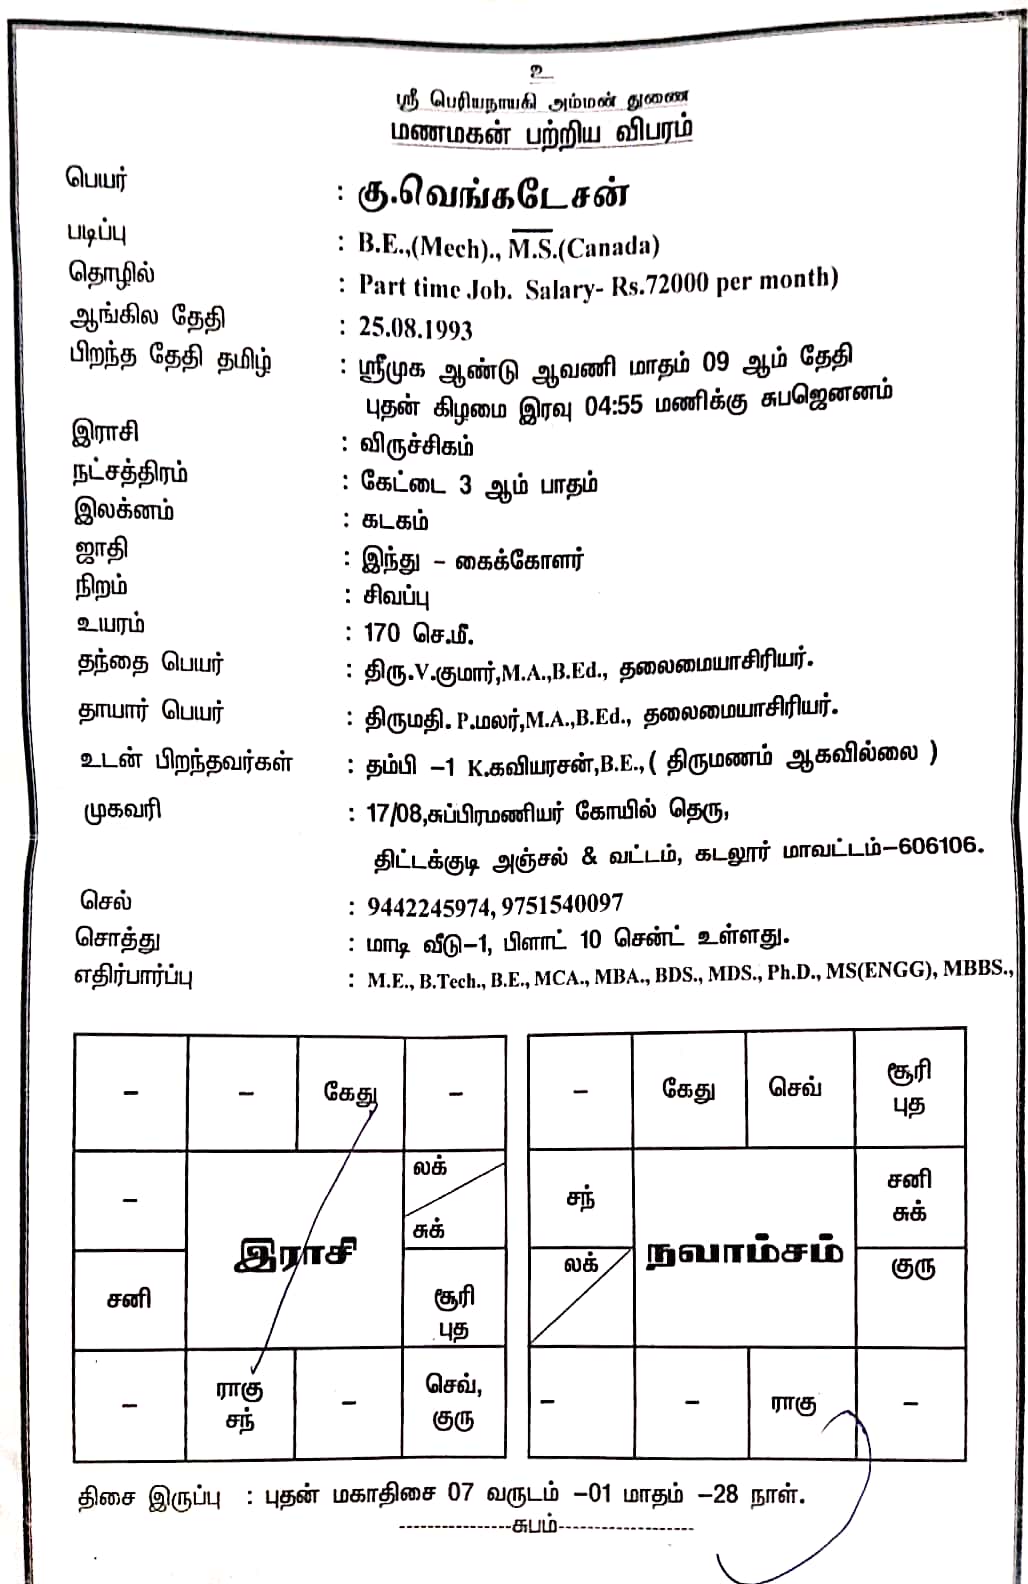 உ
ஸ்ரீ பெரியநாயகி அம்மன் துணை
மணமகன் பற்றிய விபரம்
பெயர் : கு.வெங்கடேசன்
படிப்பு : B.E.,(Mech)., M.S.(Canada)
தொழில் : Part time Job. Salary- Rs.72000 per month)
ஆங்கில தேதி : 25.08.1993
பிறந்த தேதி தமிழ் : ஸ்ரீமுக ஆண்டு ஆவணி மாதம் 09 ஆம் தேதி
புதன் கிழமை இரவு 04:55 மணிக்கு சுபஜெனனம்
இராசி : விருச்சிகம்
நட்சத்திரம் : கேட்டை 3 ஆம் பாதம்
இலக்னம் : கடகம்
ஜாதி : இந்து – கைக்கோளர்
நிறம் : சிவப்பு
உயரம் : 170 செ.மீ.
தந்தை பெயர் : திரு.V.குமார்,M.A.,B.Ed., தலைமையாசிரியர்.
தாயார் பெயர் : திருமதி. P.மலர்,M.A.,B.Ed., தலைமையாசிரியர்.
உடன் பிறந்தவர்கள் : தம்பி –1 K.கவியரசன்,B.E.,( திருமணம் ஆகவில்லை )
முகவரி : 17/08,சுப்பிரமணியர் கோயில் தெரு,
திட்டக்குடி அஞ்சல் & வட்டம், கடலூர் மாவட்டம்–606106.
செல் : 9442245974, 9751540097
சொத்து : மாடி வீடு–1, பிளாட் 10 சென்ட் உள்ளது.
எதிர்பார்ப்பு : M.E., B.Tech., B.E., MCA., MBA., BDS., MDS., Ph.D., MS(ENGG), MBBS.,
– – கேது –
– லக்
சுக்
இராசி
சனி சூரி
புத
– ராகு
சந் – செவ்,
குரு
– கேது செவ் சூரி
புத
சந் சனி
சுக்
நவாம்சம்
லக் குரு
– – ராகு –
திசை இருப்பு : புதன் மகாதிசை 07 வருடம் –01 மாதம் –28 நாள்.
-----------------சுபம்--------------------